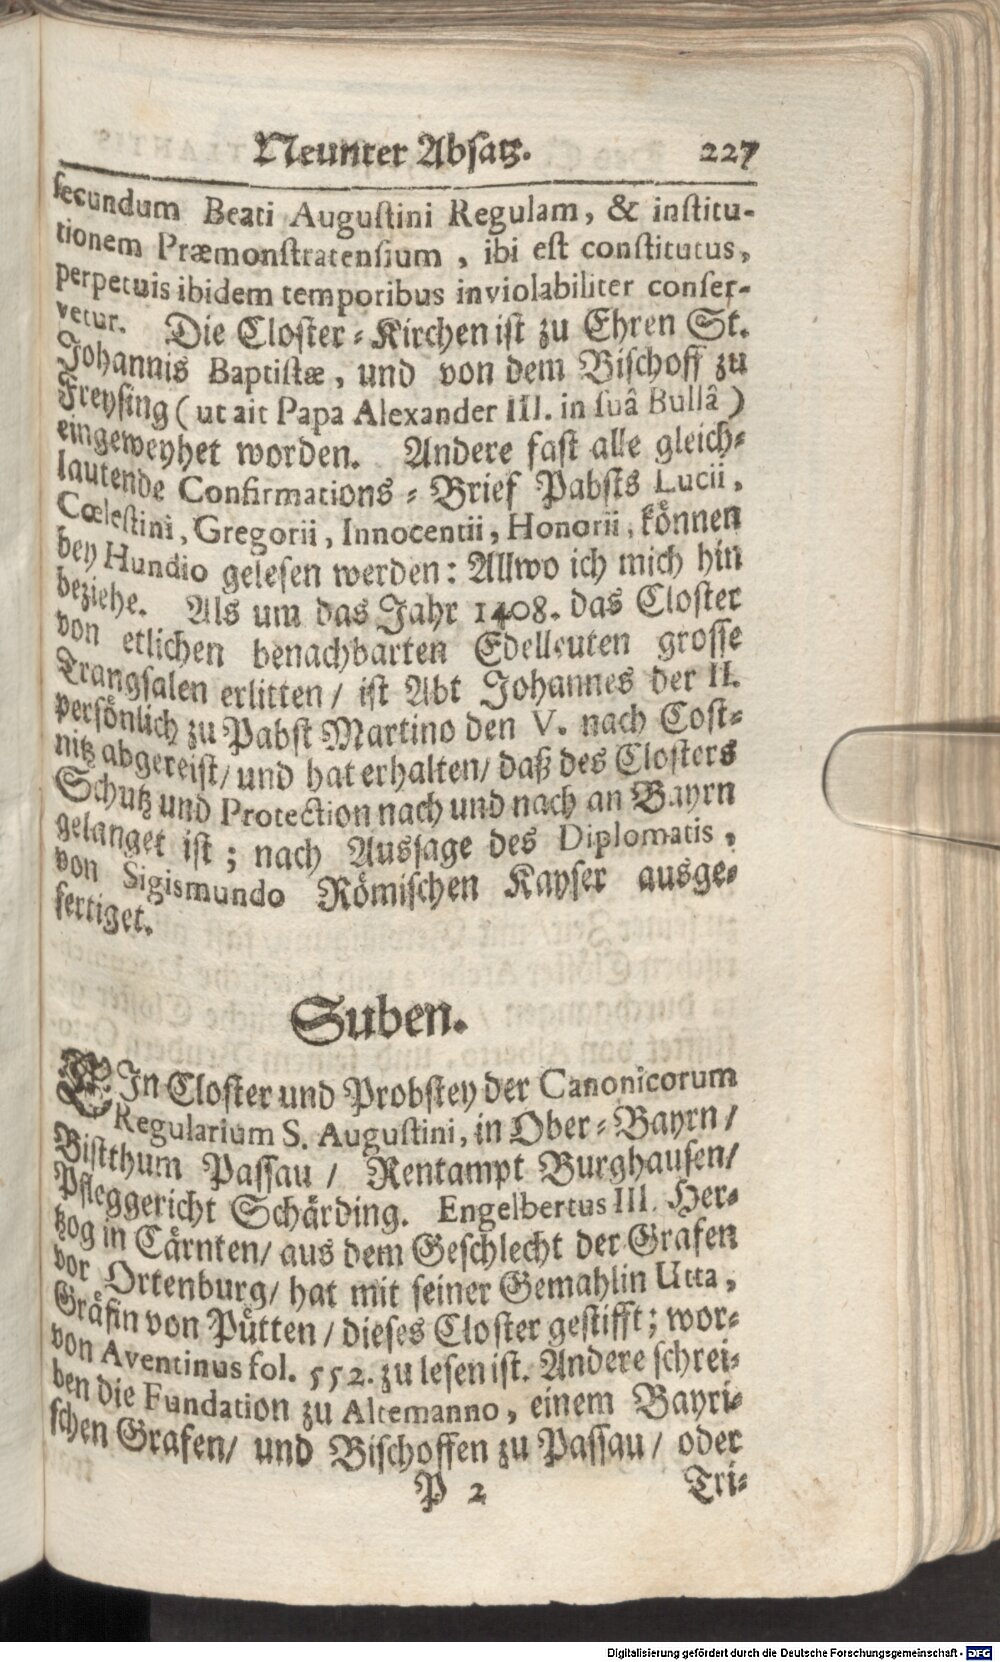 Neunter Absatz. 227
secundum Beati Augustini Regulam, & institu-
tionem Præmonstratensium, ibi est constitutus,
perpetuis ibidem temporibus inviolabiliter conser-
vetur. Die Closter-Kirchen ist zu Ehren St.
Johannis Baptistæ, und von dem Bischoff zu
Freysing (ut ait Papa Alexander III. in suâ Bullâ)
eingeweyhet worden. Andere fast alle gleich-
lautende Confirmations-Brief Pabsts Lucii,
Cœlestini, Gregorii, Innocentii, Honorii, können
bey Hundio gelesen werden: Allwo ich mich hin
beziehe. Als um das Jahr 1408. das Closter
von etlichen benachbarten Edelleuten grosse
Trangsalen erlitten/ ist Abt Johannes der II.
persönlich zu Pabst Martino den V. nach Cost-
nitz abgereist/ und hat erhalten/ daß des Closters
Schutz und Protection nach und nach an Bayrn
gelanget ist; nach Aussage des Diplomatis,
von Sigismundo Römischen Kayser ausge-
fertiget.
Suben.
EIn Closter und Probstey der Canonicorum
Regularium S. Augustini, in Ober-Bayrn/
Bistthum Passau/ Rentampt Burghausen/
Pfleggericht Schärding. Engelbertus III. Her-
tzog in Cärnten/ aus dem Geschlecht der Grafen
vor Ortenburg/ hat mit seiner Gemahlin Utta,
Gräfin von Pütten/ dieses Closter gestifft; wor-
von Aventinus fol. 552. zu lesen ist. Andere schrei-
ben die Fundation zu Altemanno, einem Bayri-
schen Grafen/ und Bischoffen zu Passau/ oder
P 2 Tri-
Digitalisierung gefördert durch die Deutsche Forschungsgemeinschaft - DFG